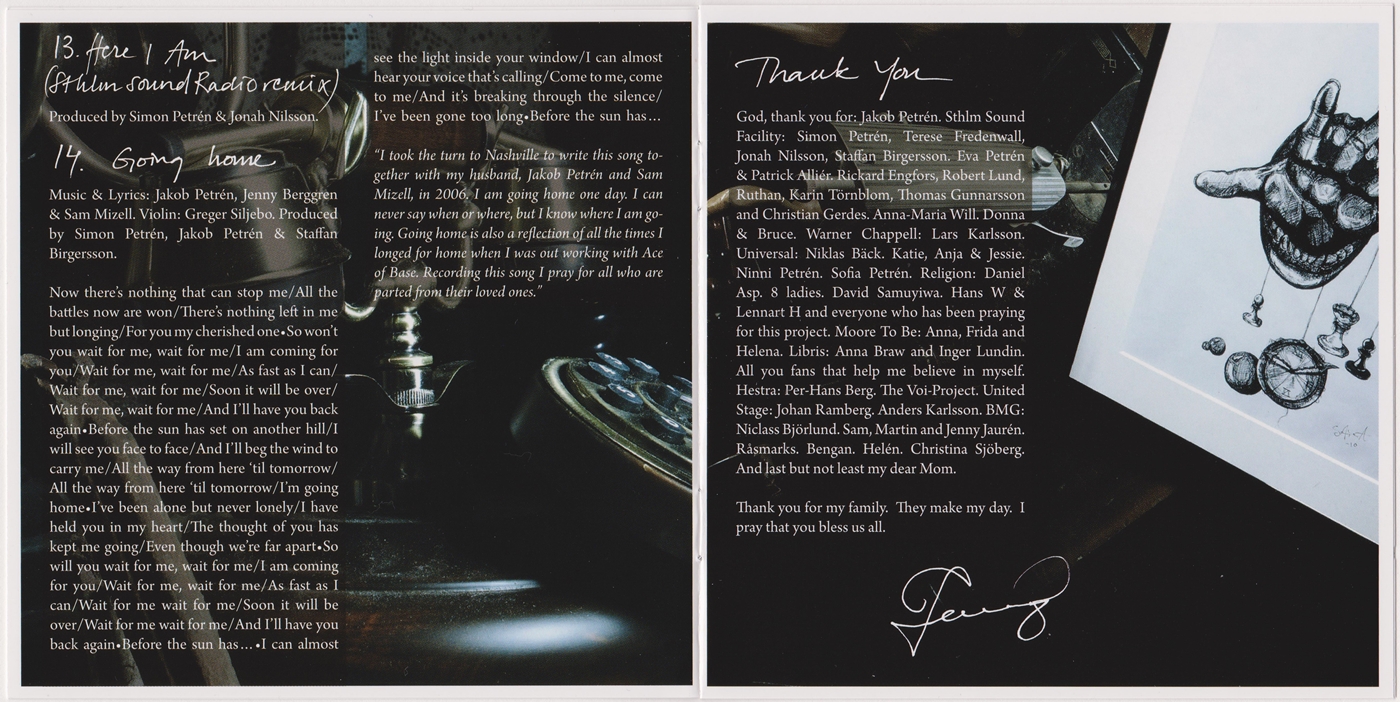 13. Here I Am
(Sthlm sound Radio remix)
Produced by Simon Petrén & Jonah Nilsson.
14. Going home
Music & Lyrics: Jakob Petrén, Jenny Berggren
& Sam Mizell. Violin: Greger Siljebo. Produced
by Simon Petrén, Jakob Petrén & Staffan
Birgersson.
Now there's nothing that can stop me/All the
battles now are won/There's nothing left in me
but longing/For you my cherished one•So won't
you wait for me, wait for me/I am coming for
you/Wait for me, wait for me/As fast as I can/
Wait for me, wait for me/Soon it will be over/
Wait for me, wait for me/And I'll have you back
again•Before the sun has set on another hill/I
will see you face to face/And I'll beg the wind to
carry me/All the way from here 'til tomorrow/
All the way from here 'til tomorrow/I'm going
home•I've been alone but never lonely/I have
held you in my heart/The thought of you has
kept me going/Even though we're far apart•So
will you wait for me, wait for me/I am coming
for you/Wait for me, wait for me/As fast as I
can/Wait for me wait for me/Soon it will be
over/Wait for me wait for me/And I'll have you
back again•Before the sun has…•I can almost
see the light inside your window/I can almost
hear your voice that's calling/Come to me, come
to me/And it's breaking through the silence/
I've been gone too long•Before the sun has…
"I took the turn to Nashville to write this song to-
gether with my husband, Jakob Petrén and Sam
Mizell, in 2006. I am going home one day. I can
never say when or where, but I know where I am go-
ing. Going home is also a reflection of all the times I
longed for home when I was out working with Ace
of Base. Recording this song I pray for all who are
parted from their loved ones."
Thank You
God, thank you for: Jakob Petrén. Sthlm Sound
Facility: Simon Petrén, Terese Fredenwall,
Jonah Nilsson, Staffan Birgersson. Eva Petrén
& Patrick Alliér. Rickard Engfors, Robert Lund,
Ruthan, Karin Törnblom, Thomas Gunnarsson
and Christian Gerdes. Anna-Maria Will. Donna
& Bruce. Warner Chappell: Lars Karlsson.
Universal: Niklas Bäck. Katie, Anja & Jessie.
Ninni Petrén. Sofia Petrén. Religion: Daniel
Asp. 8 ladies. David Samuyiwa. Hans W &
Lennart H and everyone who has been praying
for this project. Moore To Be: Anna, Frida and
Helena. Libris: Anna Braw and Inger Lundin.
All you fans that help me believe in myself.
Hestra: Per-Hans Berg. The Voi-Project. United
Stage: Johan Ramberg. Anders Karlsson. BMG:
Niclass Björlund. Sam, Martin and Jenny Jaurén.
Råsmarks. Bengan. Helén. Christina Sjöberg.
And last but not least my dear Mom.
Thank you for my family. They make my day. I
pray that you bless us all.
Jenny